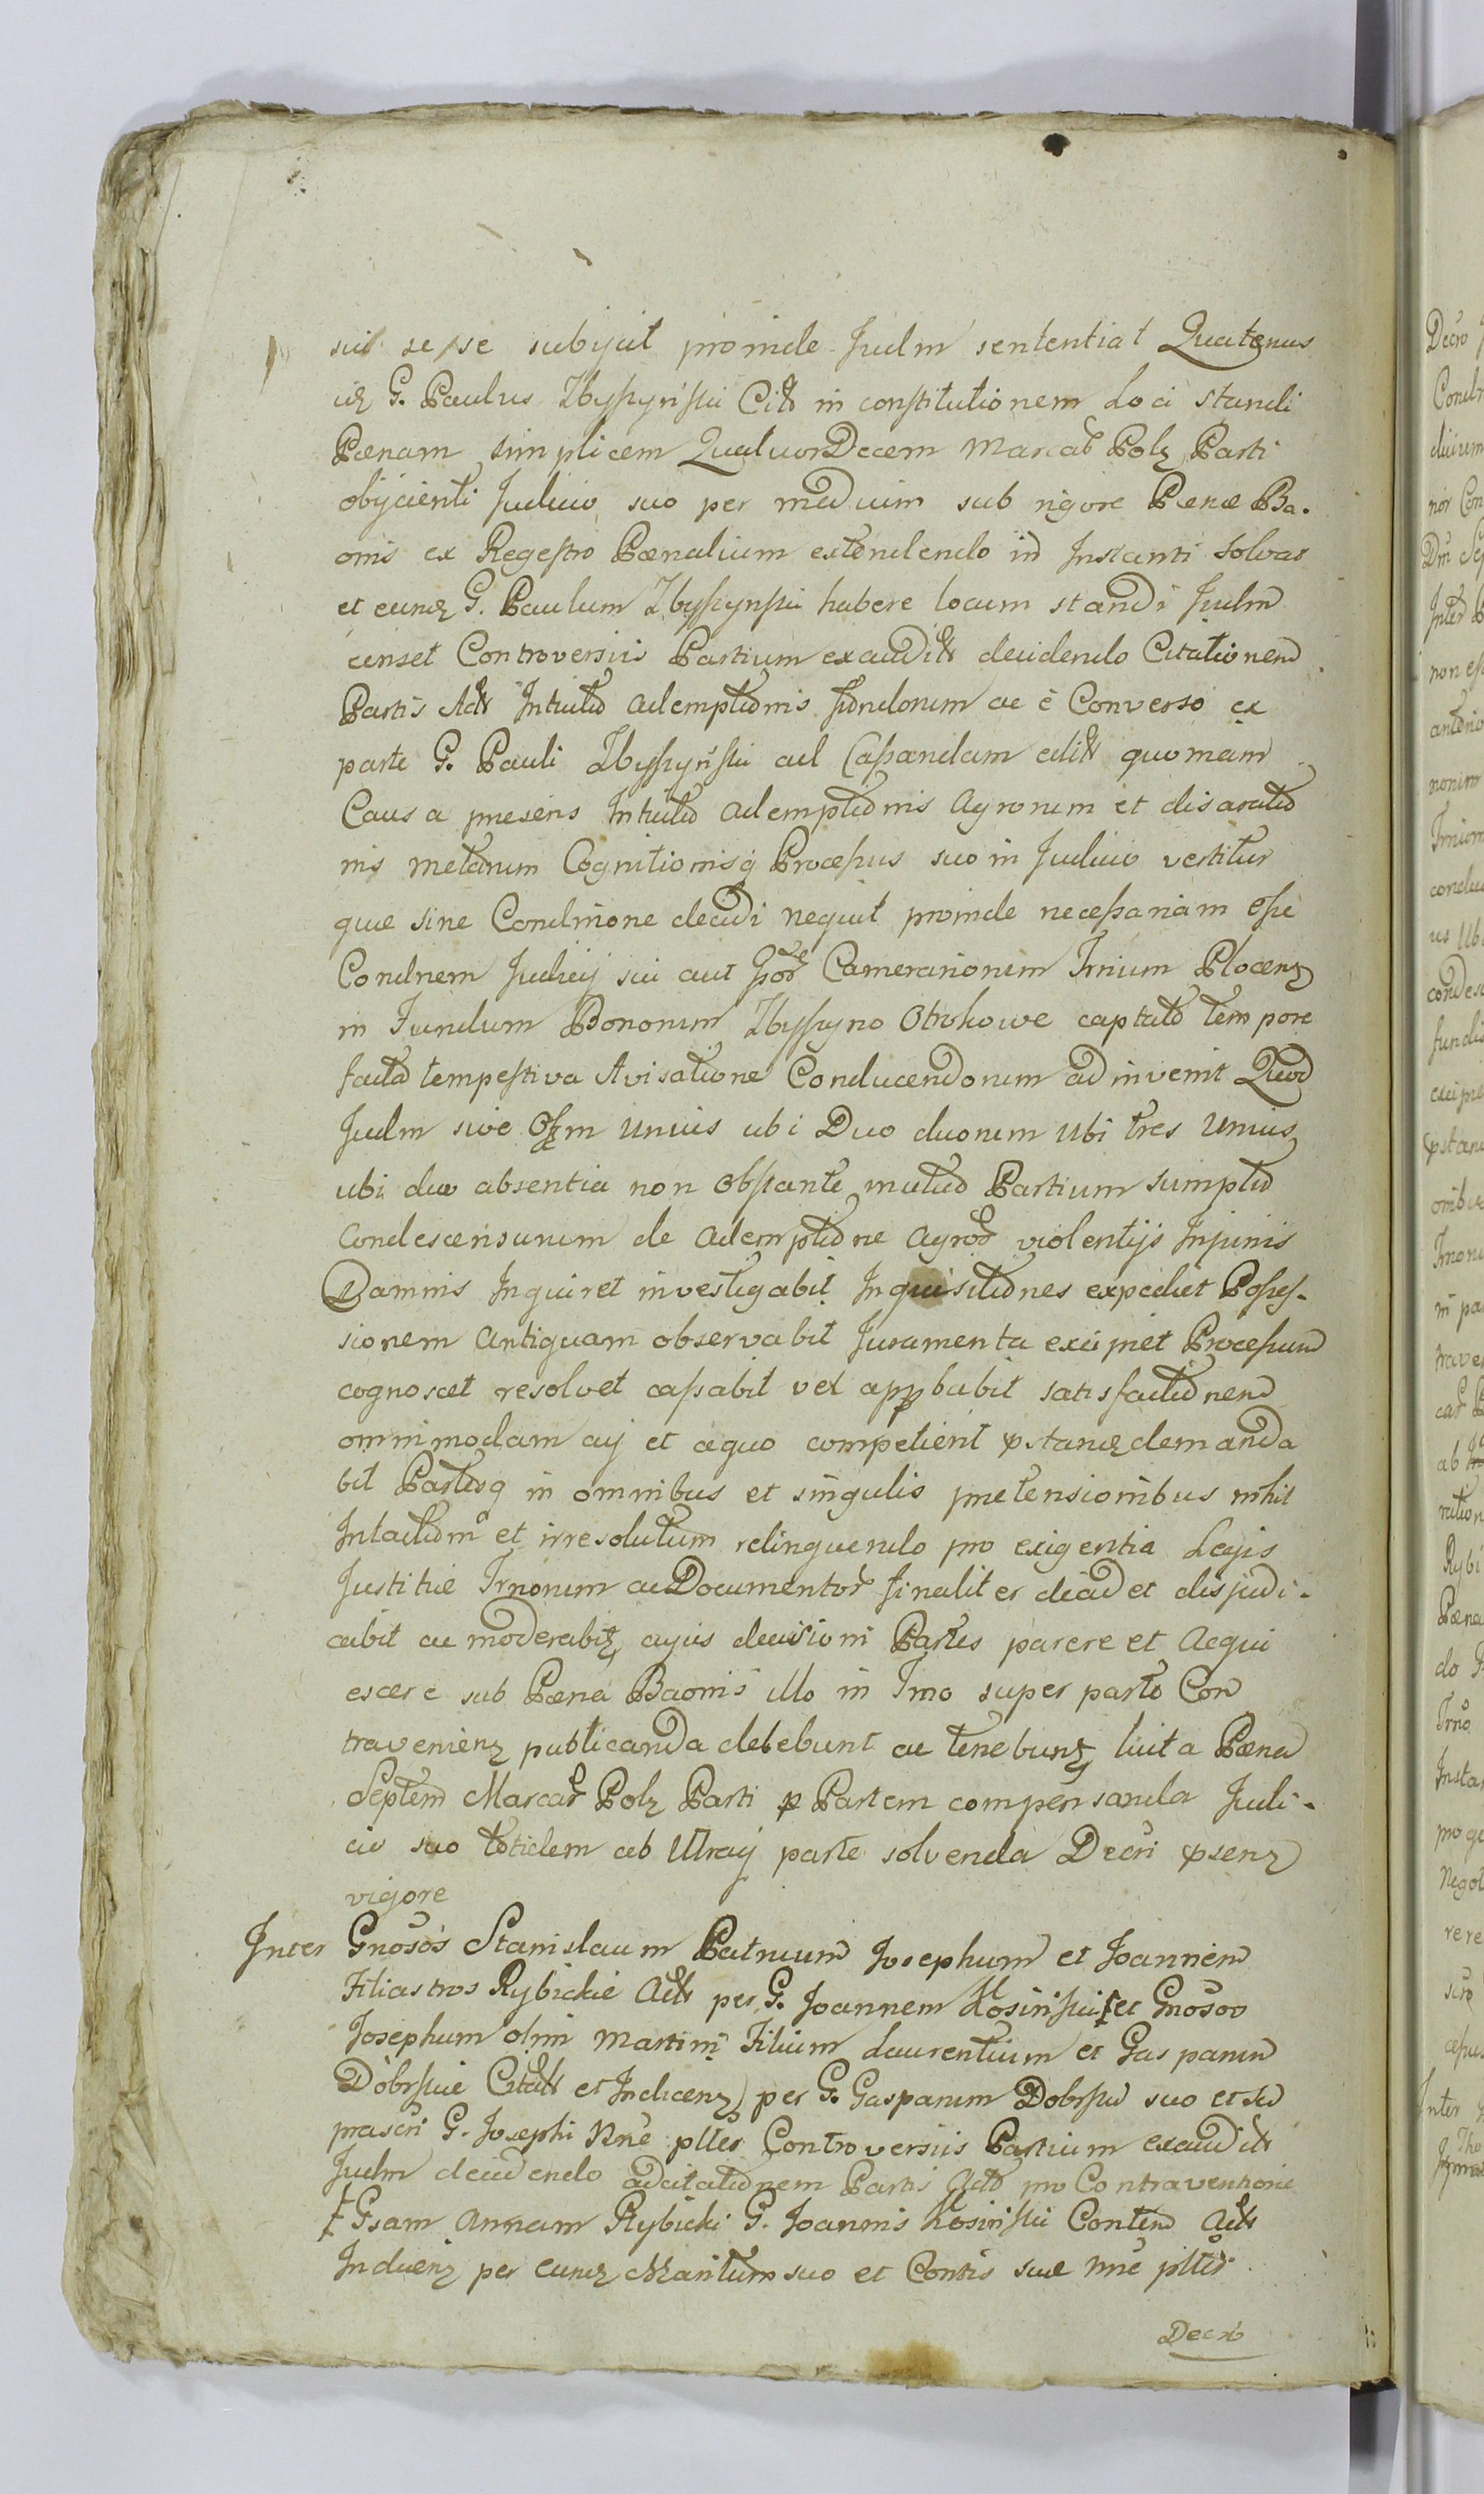 sui sese subijcit proinde Judm sententiat Quatenus
idz G. Paulus Zbyszyński Citt in constitutionem Loci standi
Pœnam simplicem Qualuor Decem Marcar Polz Parti
obijcienti Judicio suo per medium sub rigore Pœnæ Ba.
onis ex Regestro Pœnalium extendendo in Instanti solvat
et eundz G. Paulum Zbyszynski habere locum standi Judm
censet Controversiis Partium exauditt decidendo Citationem
Partis Actt Intuitu ademptionis fundorum ac è Converso ex
parte G. Pauli Zbyszyński ad Cassandam editt quoniam
Causa præsens Intuitu ademptionis Agrorum et disaratio
nis metarum Cognitionisq Processus suo in Judicio vertitur
quæ sine Condnione decidi nequit proinde necessariam esse
Condnem Judicij sui aut Camerariorum Trnium Plocenz
in Fundum Bonorum Zbyszyno Otrokowe captato tempore
facta tempestiva Avisatione Conducendorum adinvenit Quod
Judm sive Offm unius ubi Duo duorum ubi tres unius
ubi duæ absentia non obstante mutuo Partium sumptu
Condescensurum de Ademptione Agror violentijs Injuriis
Damnis Inquiret investigabit Inquisitiones expediet Posses-
sionem Antiquam observabit Juramenta excipiet Processum
cognoscet resolvet cassabit vel appbabit satisfactionem
omnimodam cuj et a quo competierit pstandz demanda
bit Partesq in omnibus et singulis prætensionibus nihil
Intactum et irresolutum relinquendo pro exigentia Legis
Justitiæ Trnorum ac Documentor finaliter decidet disjudi-
cabit ac moderabitz cujus decisioni Partes parere et Acqui
escere sub Pœna Baonis illo in Trno super parte Con
travenienz publicanda debebunt ac tenebuntz luita Pœna
Septem Marcar Polz Parti p Partem compensanda Judi-
cio suo totidem ab Utraqz parte solvenda Decri psenz
vigore
Inter Gnosos Stanislaum Patruum Josephum et Joannem
Filiastros Rybickie Actt per G. Joannem Kosiński ⨍ et Gnosos
Josephum olim Martini Filium Laurentium et Gasparum
Dobrskie Citatt et Inducenz per G. Gasparum Dobrski suo et
prascri G. Josephi Nne pltes Controversiis Partium exauditt
Judm decidendo adcitationem Partis Actt pro Contraventione
⨍ Gsam Annam Rybicki G. Joannis Kosiński Contem Actt
Inducenz per eundz Maritum suo et Contis suæ nne pltes
Decto